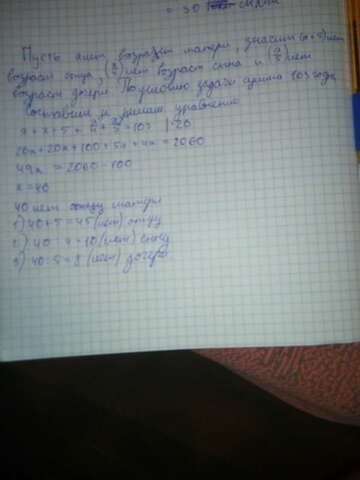 = 50
Пусть x лет возраст матери, значит (x+5) лет
возраст отца, (x/4) лет возраст сына и (x/5) лет
возраст дочери. По условию задачи сумма 103 года
Составим и решим уравнение
x + x + 5 + x/4 + x/5 = 103 | · 20
20x + 20x + 100 + 5x + 4x = 2060
49x = 2060 - 100
x = 40
40 лет матери
1) 40 + 5 = 45 (лет) отцу
2) 40 : 4 = 10 (лет) сыну
3) 40 : 5 = 8 (лет) дочери